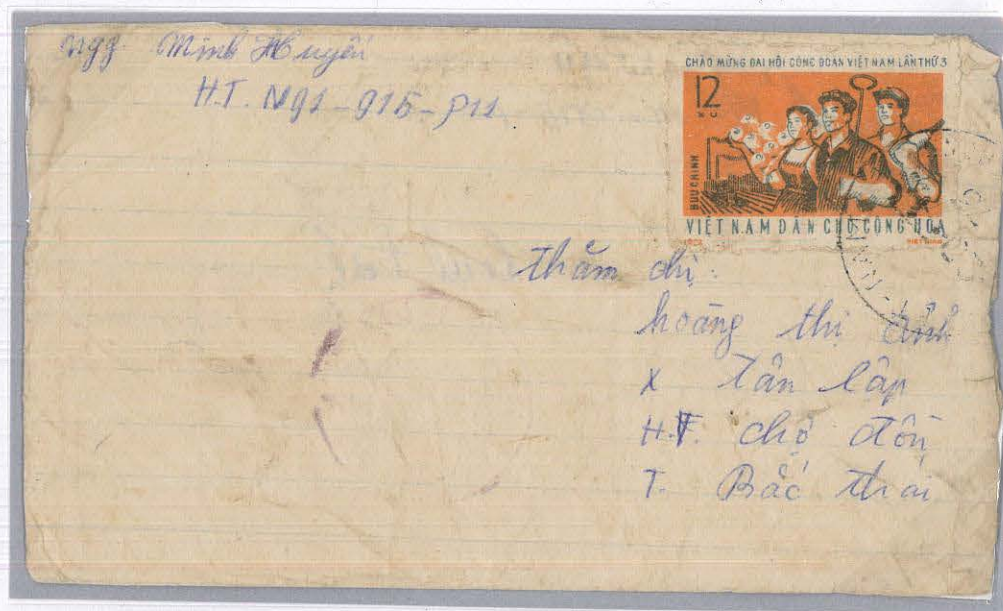 Minh Huyền
H.T. N91-915-P11
CHÀO MỪNG ĐẠI HỘI CÔNG ĐOÀN VIỆT NAM LẦN THỨ 3
12
XU
BƯU CHÍNH
VIỆT NAM DÂN CHỦ CỘNG HÒA
thăm chị:
hoàng thị
X Tân lập
H.T. chợ đồn
T. Bắc thái